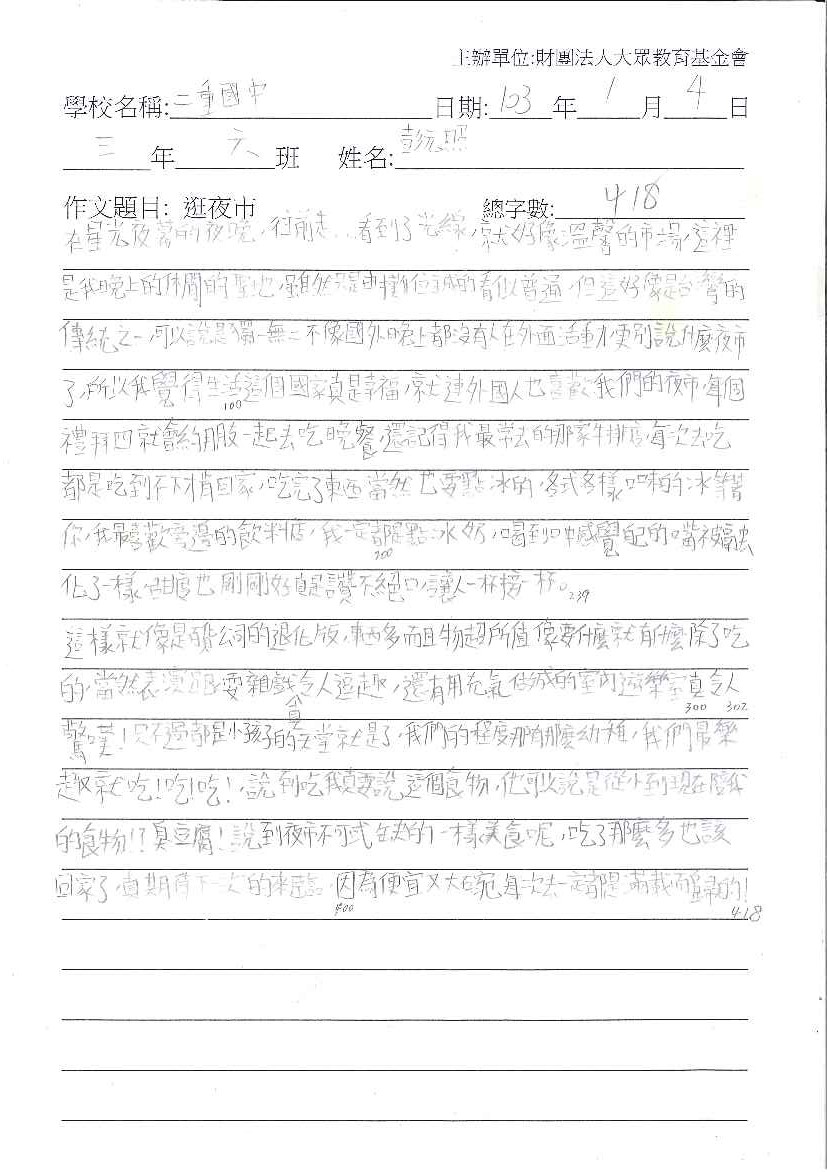 主辦單位:財團法人大眾教育基金會
學校名稱:二重國中 日期:103年1月4日
三年六班 姓名:彭
作文題目: 逛夜市 總字數:418
在星光夜幕的夜晚,往前走..看到了光線,就好像溫馨的市場,這裡
是我晚上的休閒的聖地,雖然只是由攤位組成的看似普通,但這好像是台灣的
傳統之一,可以說是獨一無二不像國外晚上都沒有人在外面活動才更別說什麼夜市
了,所以我覺得生活這個國家真是幸福,就連外國人也喜歡我們的夜市,每個
100
禮拜四就會約朋股一起去吃晚餐,還記得我最常去的那家牛排店,每次去吃
都是吃到不下才肯回家,吃完了東西當然也要點冰的,各式各樣口味的冰等著
你,我最喜歡旁邊的飲料店,我一定都是點冰奶,喝到口中感覺自己的嘴被融
200
化了一樣,甜度也剛剛好真是讚不絕口,讓人一杯接一杯。239
這樣就像是百貨公司的退化版,東西多而且物超所值,像要什麼就有什麼除了吃
的,當然表演 耍雜戲令人逗趣,還有用充氣 成的室內遊樂室真令人
300 302
驚嘆!只不過都是小孩子的天堂就是了,我們的程度那有那麼幼稚,我們最樂
趣就吃!吃!吃!,說到吃我真要說這個食物,他可以說是從小到現在陪我
的食物!?臭豆腐!說到夜市不可或缺的一樣美食呢,吃了那麼多也該
回家了,面期待下一次的來臨,因為便宜又大碗,每次去一定都是滿載而歸的!
400 418